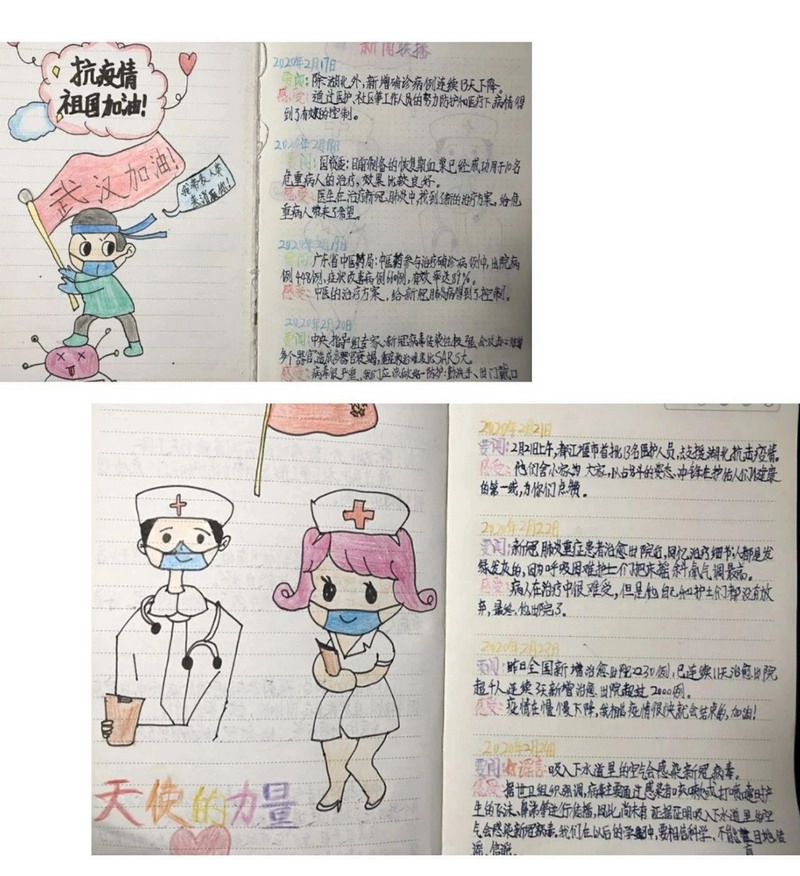 抗疫情
祖国加油!
武汉加油!
我带众人来
来消灭你!
新闻联播
2020年2月17日
要闻:除湖北外,新增确诊病例连续13天下降。
感受:通过医护、社区等工作人员的努力防护和医疗下,病情得
到了有效的控制。
2020年2月18日
要闻:国务院:目前制备的恢复期血浆已经成功用于10名
危重病人的治疗,效果比较良好。
感受:医生在治疗新冠肺炎中,找到了新的治疗方案。给危
重病人带来了希望。
2020年2月19日
要闻:广东省中医药局:中医药参与治疗确诊病例中,出院病
例448例,症状改善病例
有效率达89%。
感受:中医的治疗方案,给新冠肺炎病得到了控制。
2020年2月20日
要闻:中央指导组专家:新冠病毒传染性极强,会攻击
多个器官,造成多器官衰竭,
难度比SARS大。
感受:病毒很严重,我们应该做好防护:勤洗手、出门戴口
2020年2月21日
要闻:2月21日上午,都江堰市首批13名医护人员,去支援湖北,抗击疫情。
感受:他们舍小家为大家,以战斗的姿态,冲锋在护佑人们健康
的第一线,为你们点赞。
2020年2月22日
要闻:新冠肺炎重症患者治愈出院后,回忆治疗细节:人都是发
绿发灰的,因为呼吸困难护士们把床摇
氧气调最高。
感受:病人在治疗中很难受,但是他自己和护士们都没有放
弃,最终,他出院了。
2020年2月23日
要闻:昨日全国新增治愈出院2230例,已连续11天治愈出院
超千人,连续3天新增治愈出院超过2000例。
感受:疫情在慢慢下降,我相信疫情很快就会结束的,加油!
2020年2月24日
要闻:谣言:吸入下水道里的空气会感染新冠病毒。
感受:据世卫组织强调,病毒主要通过感染者咳嗽或打喷嚏时产
生的飞沫、鼻涕等进行传播,因此,尚未有证据证明吸入下水道里的空
气会感染新冠病毒。我们在以后的学习中,要相信科学,不能盲目地传
谣、信谣。
天使的力量